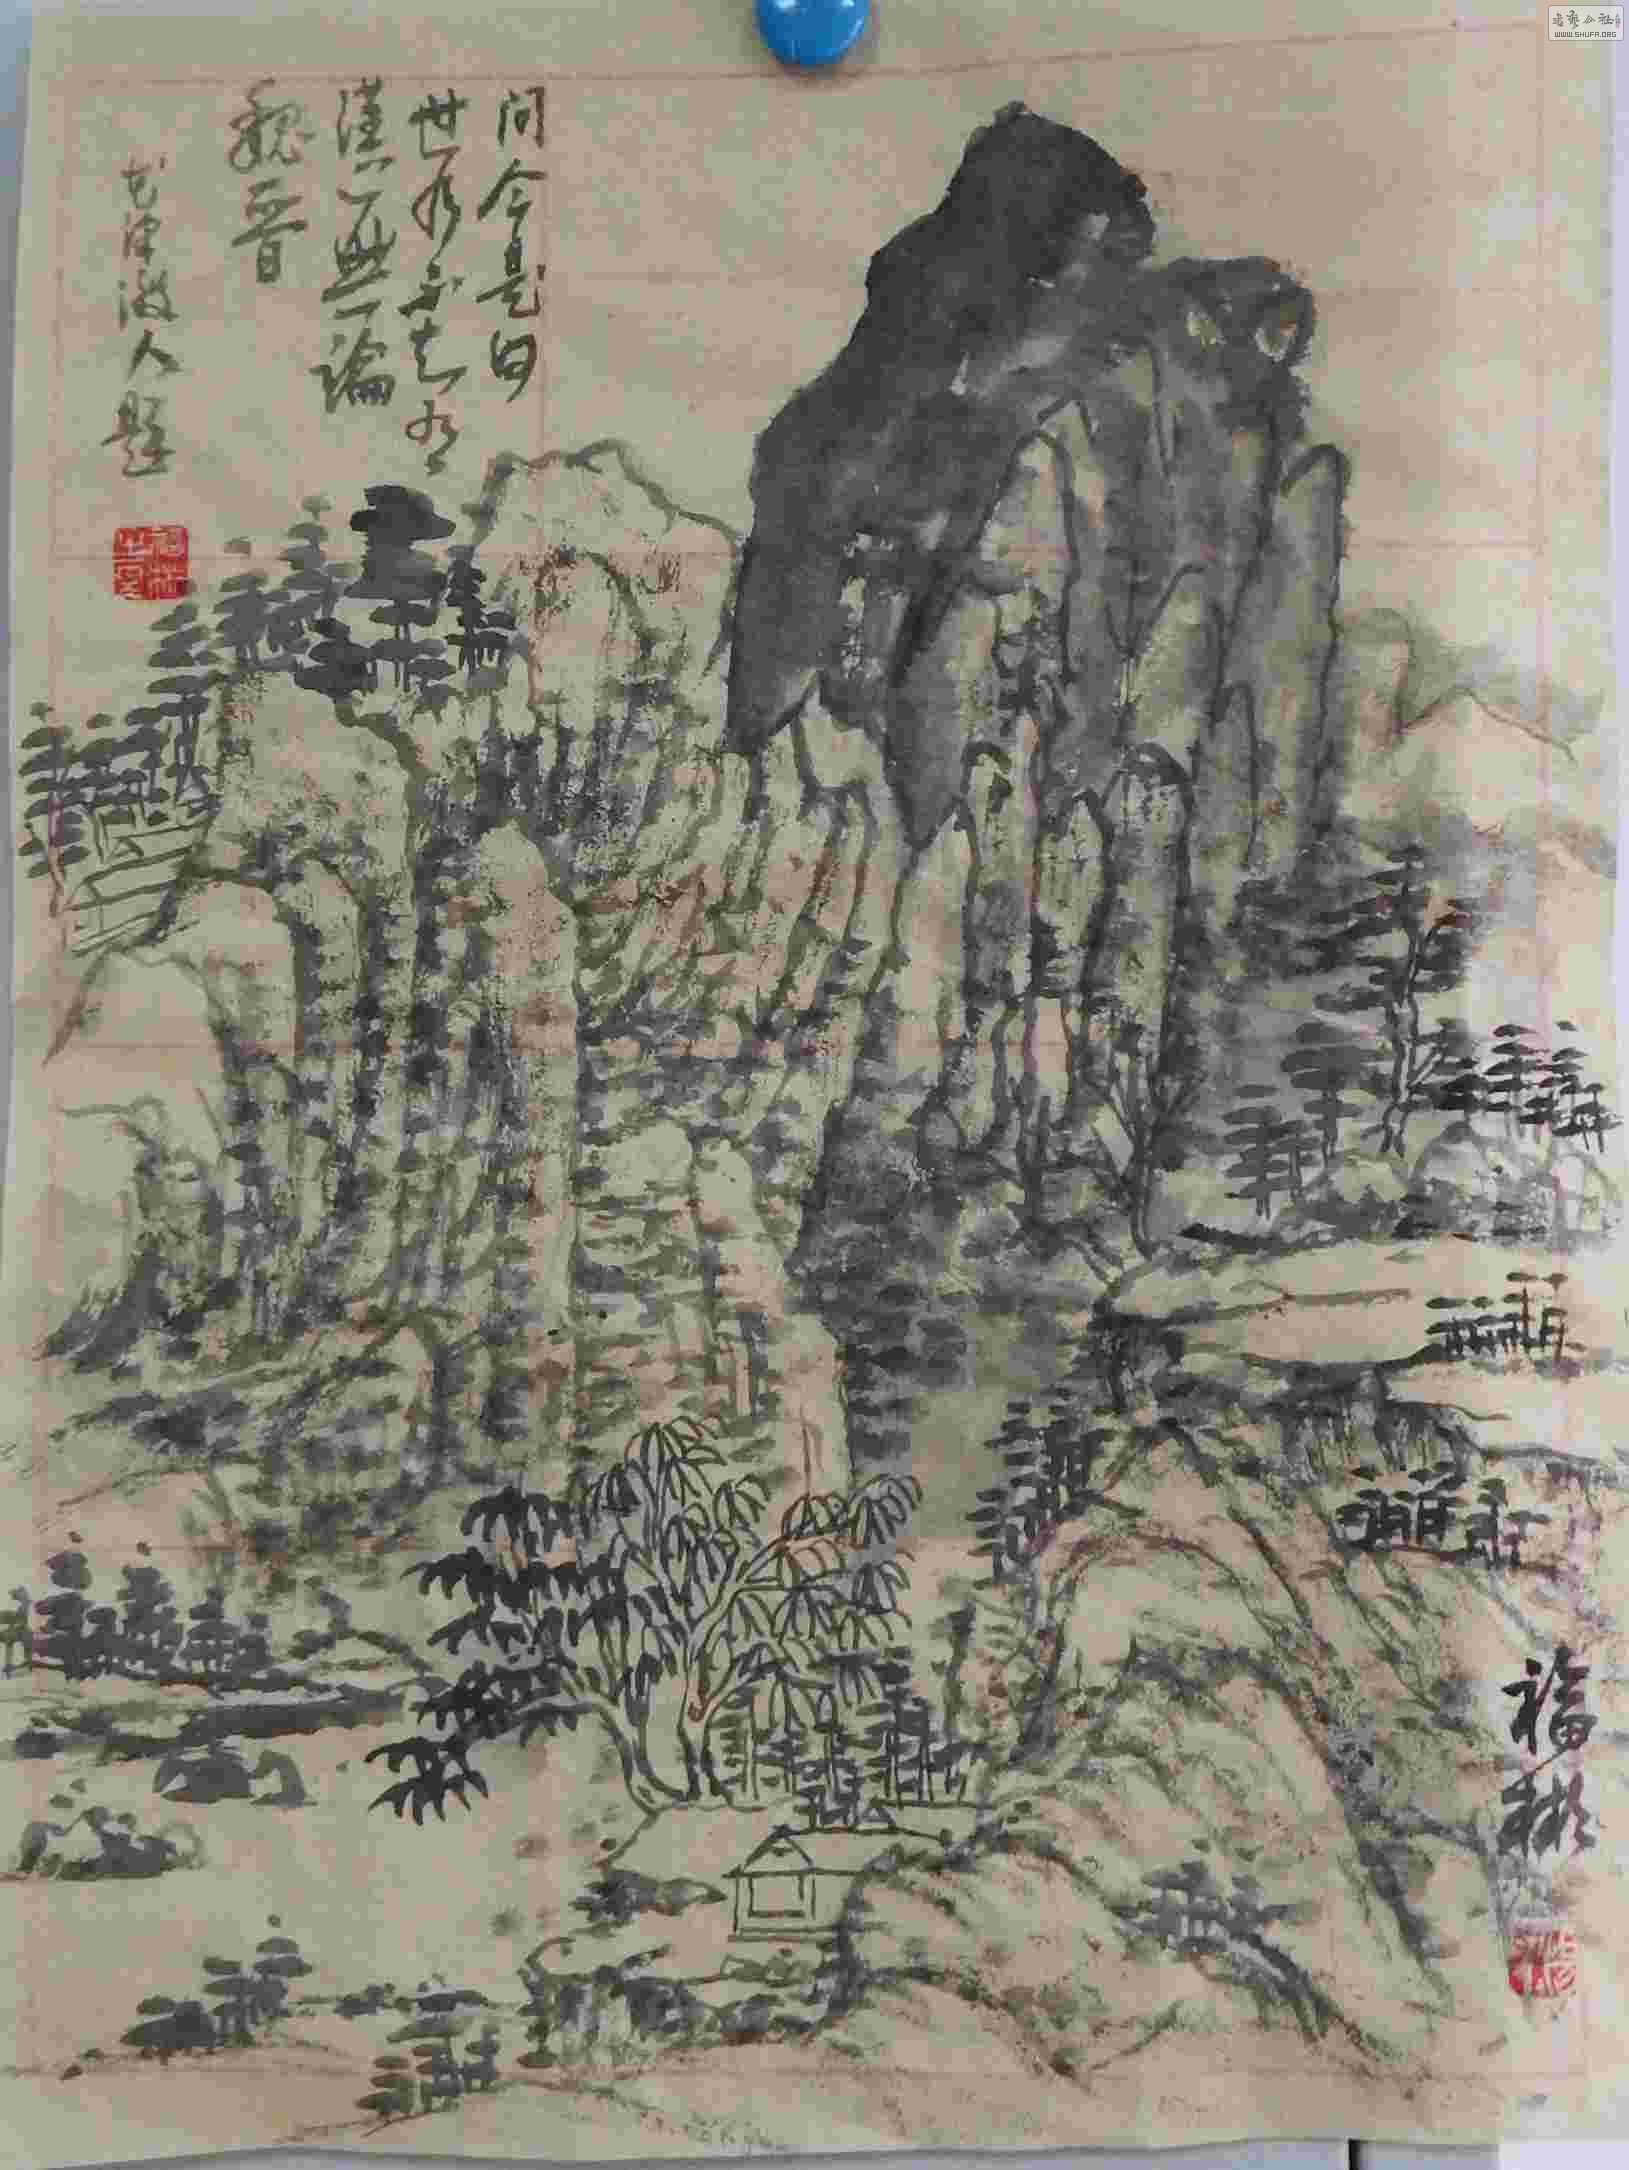 问今是何
世乃不知有
漢無論
魏晉
人題
福彬
书艺公社
WWW.SHUFA.ORG